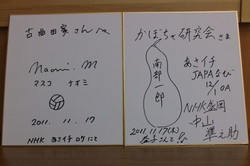 古曲由家さんへ
naomi. M
マスコ ナオミ
2011. 11. 17
NHK あさイチ ロケにて
かぼちゃ研究会さま
南部一郎
あさイチ
JAPAなび
12/1 OA
NHK盛岡
中山
準之助
2011. 11/17(木)